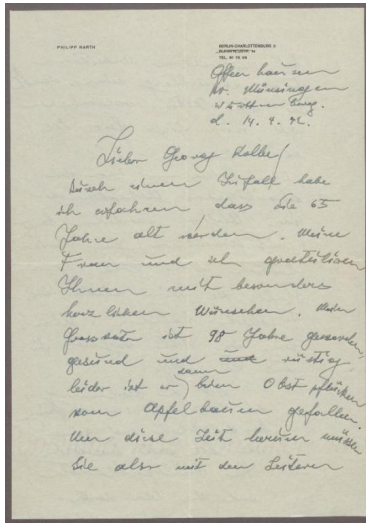 PHILIPP HARTH
BERLIN-CHARLOTTENBURG 9
TEL. 91 19 69
Offenhausen
Kr. Münsingen
Württemberg.
d. 14. 4. 42.
Lieber Georg Kolbe!
Durch einen Zufall habe
ich erfahren dass Sie 65
Jahre alt werden. Meine
Frau und ich gratulieren
Ihnen mit besonders
herzlichen Wünschen. Mein
Grossvater ist 98 Jahre geworden,
gesund und und rüstig
dann
leider ist er beim Obst pflücken
vom Apfelbaum gefallen.
Um diese Zeit herum müssen
Sie also mit den Leitern